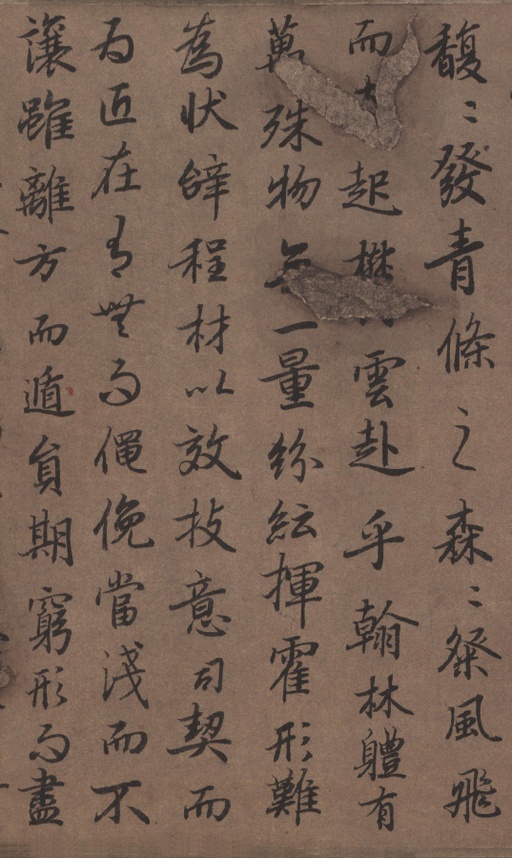 馥〻發青條之森〻粲風飛
而起雲赴乎翰林體有
萬殊物一量紛紜揮霍形難
為狀辭程材以效技意司契而
為匠在有無而僶俛當淺而不
讓雖離方而遁員期窮形而盡